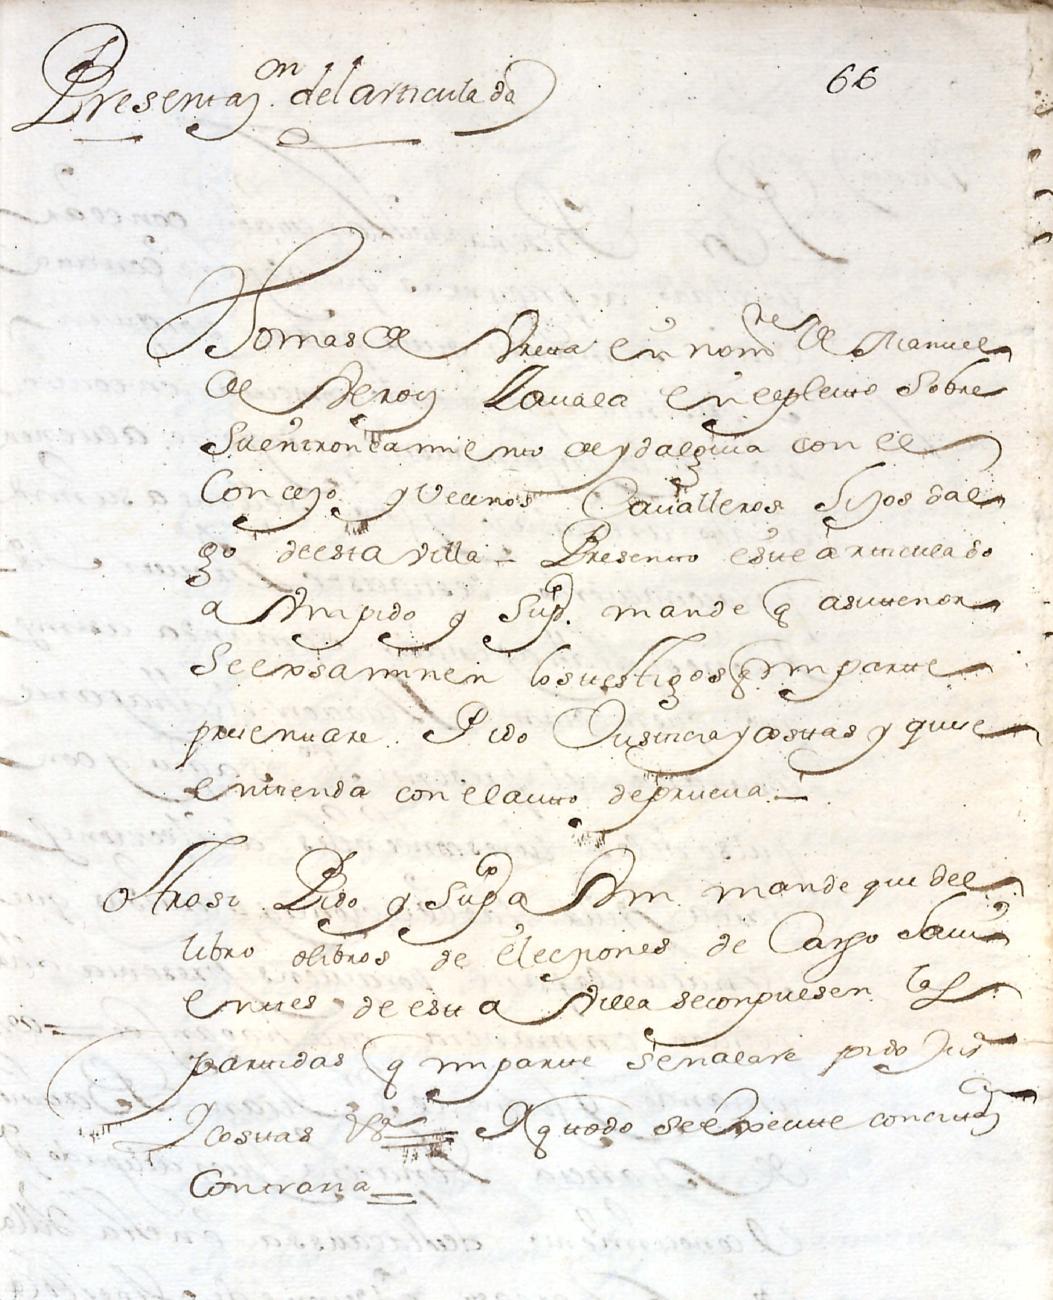 Presentaon. del articulado
66
Tomas de Urreta en nomre de Manuel
de Veroiz Zauala en el pleito sobre
su entroncamiento de ydalguia con el
Concejo y Vecinos Caualleros hijos dal
go de esta Villa = Presento este articulado
a Vm pido y supco. mande q a su tenor
se examinen los testigos q mi parte
presentare Pido Justicia y costas y que se
entienda con el auto de prueua =
Otrosi Pido y supco a Vm mande que del
libro o libros de elecziones de Cargo hauientes
de esta Villa se conpulsen las
partidas q mi parte señalare pido Just
y costas = Y q todo se execute con citaon
Contraria =